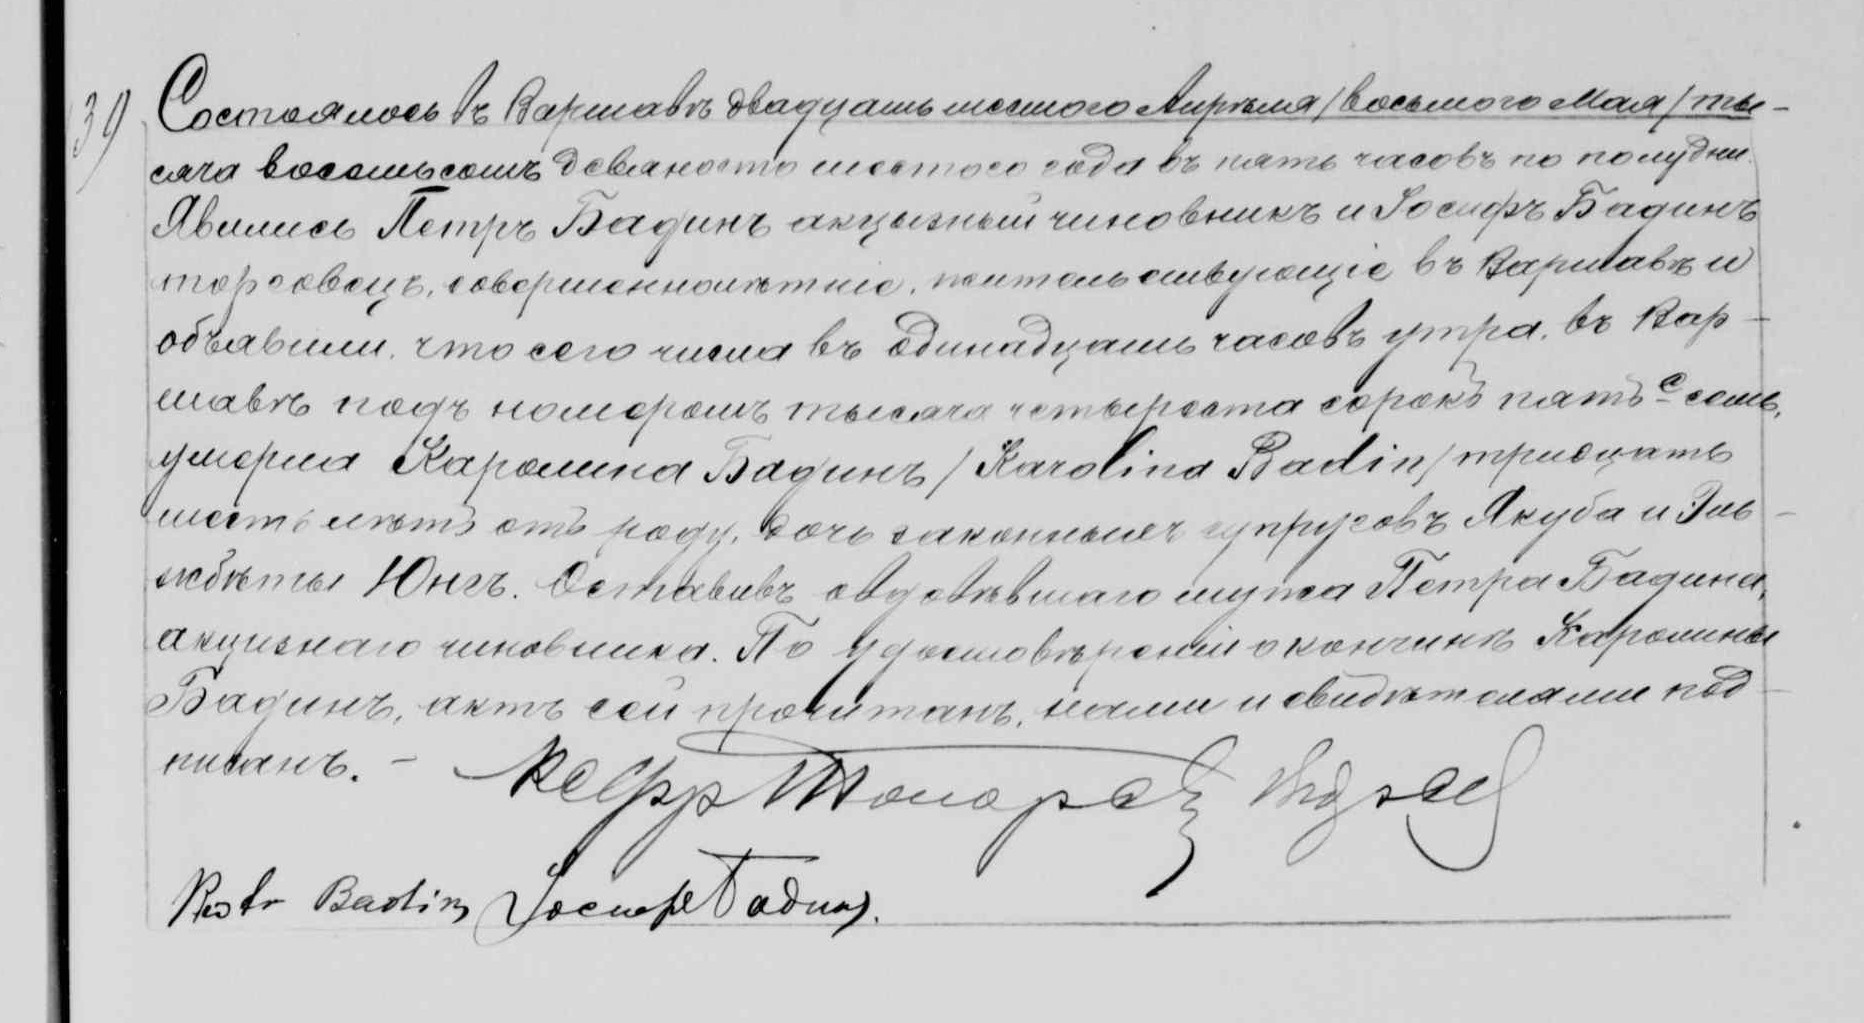 39) Состоялось въ Варшавѣ двадцать шестого Апрѣля /восьмого Мая/ ты-
сяча восемьсотъ девяносто шестого года въ пять часовъ по полудни.
Явились Петръ Бадинъ акцызный чиновникъ и Іосифъ Бадинъ
торговецъ, совершеннолѣтніе, жительствующіе въ Варшавѣ и
объявили, что сего числа въ одинадцать часовъ утра, въ Вар-
шавѣ подъ номеромъ тысяча четыреста сорокъ пять с семь,
умерла Каролина Бадинъ /Karolina Badin/ тридцать
шесть лѣтъ отъ роду, дочь законныхъ супруговъ Якуба и Эль-
жбѣты Юнгъ. Оставивъ овдовѣвшаго мужа Петра Бадина,
акцизнаго чиновника. По удостовѣреніи о кончинѣ Каролины
Бадинъ, актъ сей прочитанъ, нами и свидѣтелями под-
писанъ. –
Piotr Badin Іосифъ Бадинъ.